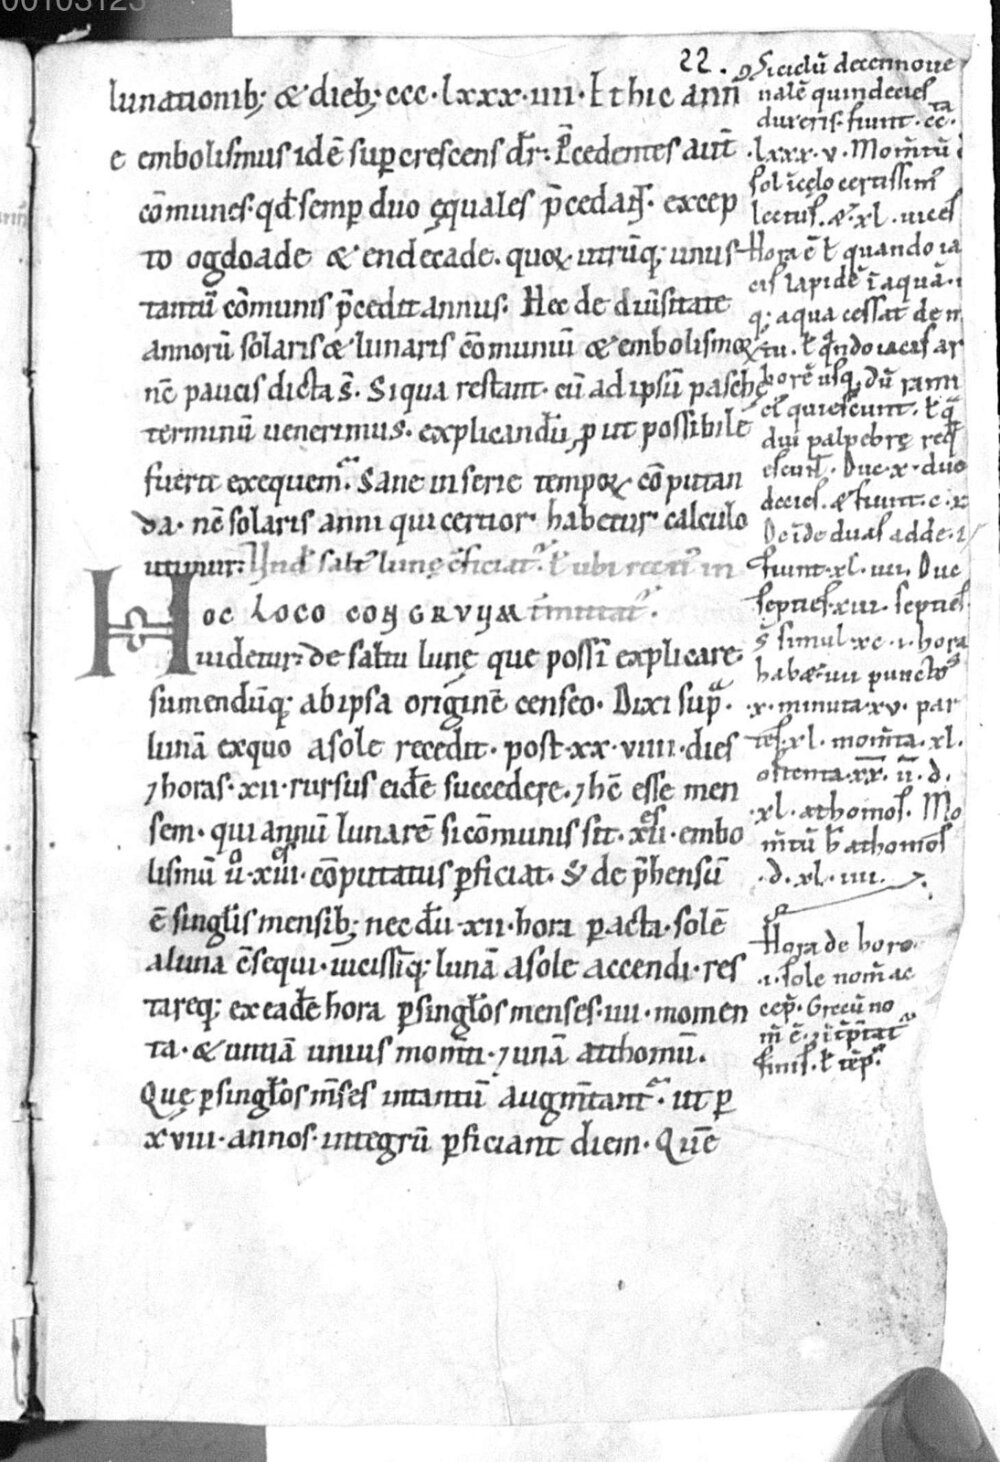 00103123
22.
lunationib; & dieb; ccc·lxxx·iiii· Et hic ann̄
e embolismus idē supcrescens dr̄: P̄cedentes aut̄
cōmunes· qd̄ semp duo ęquales p̄cedant· excep
to ogdoade & endecade· quoꝝ utrūq; unus
tantū cōmunis p̄cedit annus· Hec de diūsitate
annorū solaris & lunaris cōmuniū & embolismoꝝ
nē paucis dicta s̄· Siqua restant· cū ad ipsū pasche
terminū uenerimus· explicandū, put possibilē
fuerit exequem᷑· Sane in serie tempoꝝ cōputan
da· nē solaris anni qui certior habetur calculo
utimur: Und̄ salt᷑ lunę efficiat᷑· ł ubi in
HOC LOCO CONGRUUM
uidetur: de saltu lunę que possū explicare:
sumendūq; ab ipsa originē censeo· Dixi sup̄·
lunā exquo a sole recedit· post·xx·viiii·dies
⁊ horas·xii·rursus eidē succedere·⁊ hē esse men
sem· qui annū lunarē si cōmunis sit·xii^es·embo
lismū ū·xiii^es·cōputatus pficiat· S; dep̄hensū
ē singlis mensib; nec dū·xii·hora pacta·solē
a luna cōsequi·uicissīq; lunā a sole accendi·res
tareq; ex eadē hora p singłos menses·iiii·momen
ta·& unā unius momn̄ti·⁊ unā atthomū·
Quę p singłos mēses in tantū augmn̄tant᷑· ut p
xviii·annos·integrū pficiant diem· Quē
Si ciclū decennoue
nalē quindecies
duxeris· fiunt·cc^ta·
·lxxx·v· Momn̄tū
sol ī cęlo certissim᷑
lectus·&·xl·uices
Hora ē ł quando ia
cis lapidē ī aquā·
q; aqua cessat de m
tu· ł q̄ndo iacis ar
borē usq; dū rami
ei᷑ quiescunt· ł q̄
dui palpebrę req̄
escunt· Duc·x·duo
decies·& fiunt·c·x
Deīde duas adde·
fiunt·xl·iiii· Duc
septies·xiii·septies
s̄ simul·xc·i·hora
habꝫ·iiii·punctos
·x·minuta·xv·par
tes·xl·momn̄ta·xl·
ostenta·xx·ii·d·
·xl·athomos· Mo
mn̄tū h̄ athomos
·d·xl·iiii·
Hora de horo·
·i·sole nom̄ ac
cep̄· Grecū no
m̄ ē·⁊ īt̄p̄tat᷑
finis· ł tēp᷑